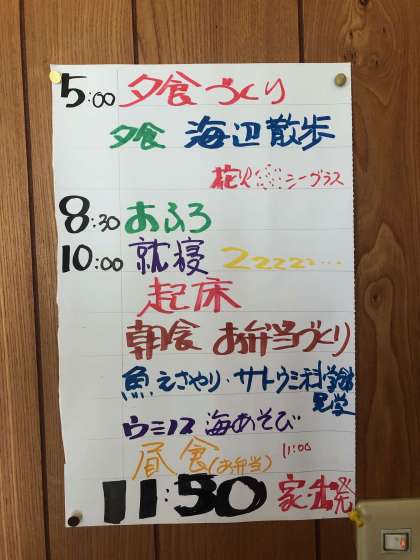 5:00 夕食づくり
夕食 海辺散歩
花火 シーグラス
8:30 おふろ
10:00 就寝 ZZZZZ...
起床
朝食 お弁当づくり
魚えさやり・サトウミ科学館
見学
ウミノス 海あそび
昼食(お弁当) 11:00
11:30 家・出発